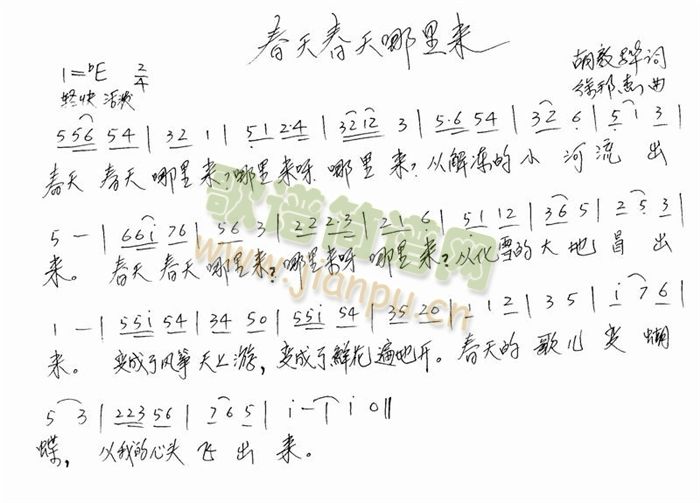 春天春天哪里来
1=ᵇE 2/4
轻快 活泼
胡敦骅词
徐邦杰曲
5 5 6 5 4 | 3 2 1 | 5 1 2·4 | 3 2 1 2 3 | 5·6 5 4 | 3 2 6 | 5 i 3 |
春天 春天 哪里来?哪里来呀 哪里来?从解冻的小河流出
5 — | 6 6 i 7 6 | 5 6 3 | 2 2 2 3 | 2 1 6 | 5 1 1 2 | 3 6 5 | 2 5 3 |
来。 春天 春天 哪里来?哪里来呀 哪里来?从化雪的大地冒出
1 — | 5 5 i 5 4 | 3 4 5 0 | 5 5 i 5 4 | 3 5 2 0 | 1 1 2 | 3 5 | i 7 6 |
来。 变成了风筝天上游,变成了鲜花遍地开。春天的歌儿变蝴
5 3 | 2 2 3 5 6 | 7 6 5 | i — | i 0 ‖
蝶, 从我的心头飞出来。
歌谱简谱网
www.jianpu.cn